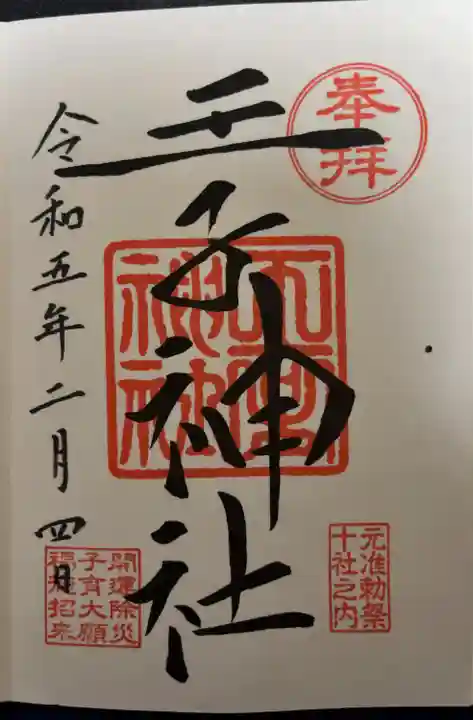 奉拝
王子神社
元准勅祭
十社之内
令和五年二月四日
開運除災
子育大願
福徳招来